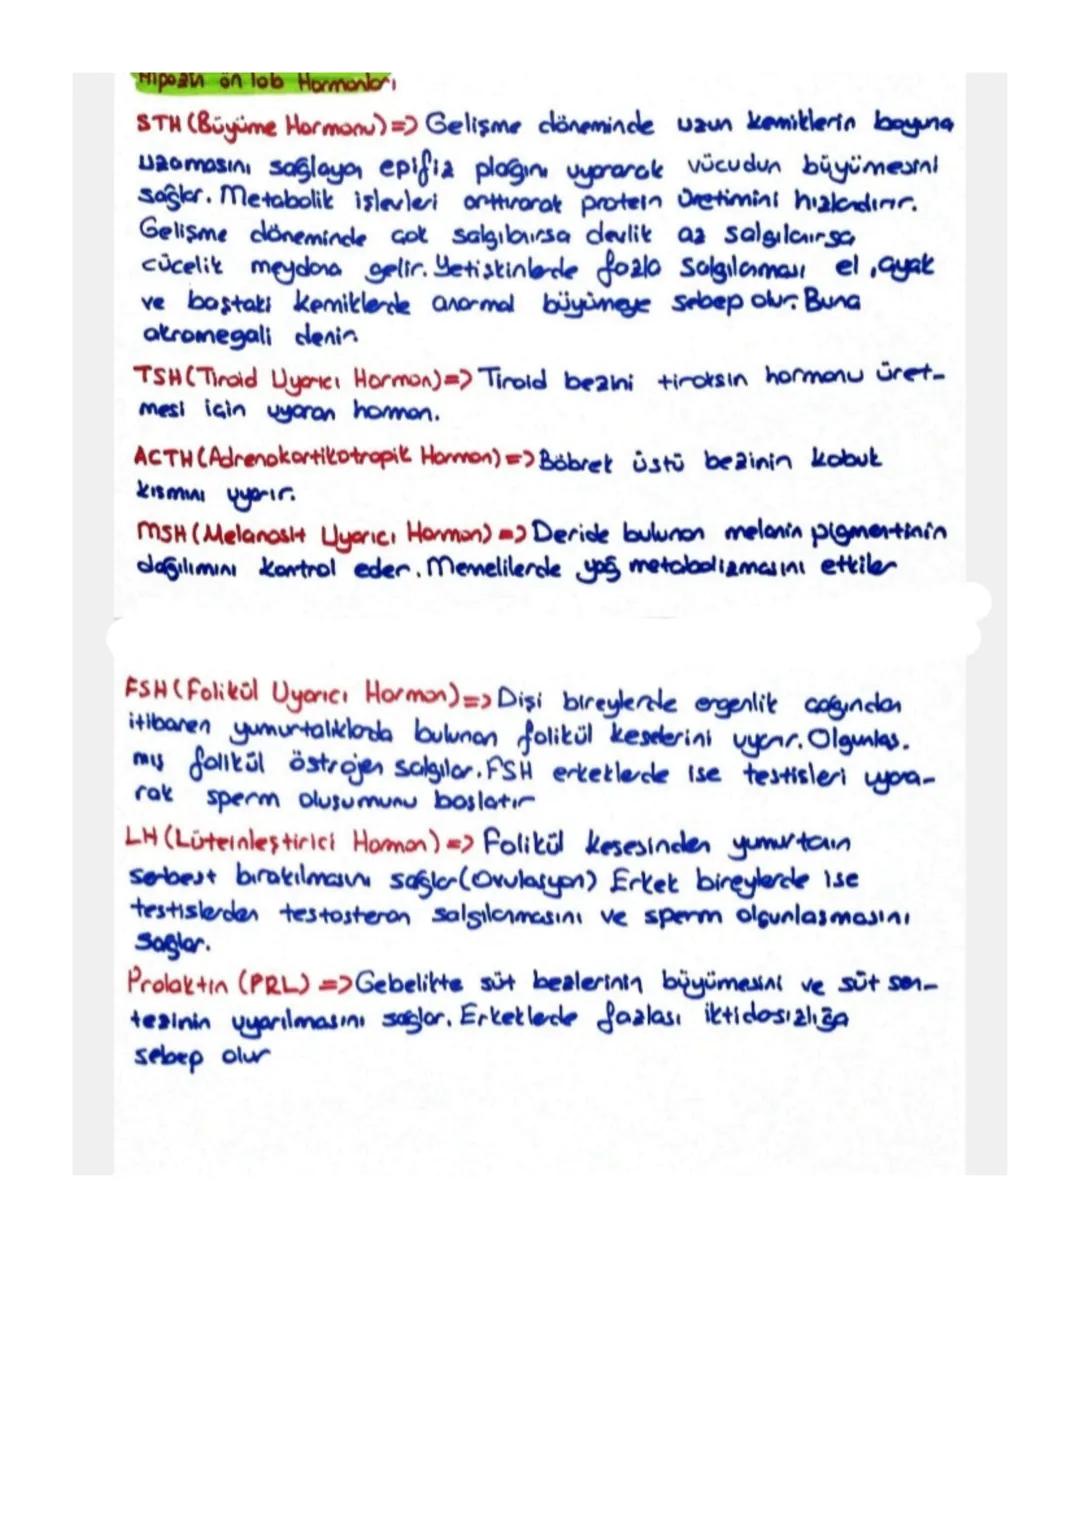 Hipofizin ön lob Hormonları
STH (Büyüme Hormonu) => Gelişme döneminde uzun kemiklerin boyuna
uzamasını sağlayan epifiz plağını uyararak vücudun büyümesini
sağlar. Metabolik işlevleri arttırarak protein üretimini hızlandırır.
Gelişme döneminde çok salgılanırsa devlik az salgılanırsa
cücelik meydana gelir. Yetişkinlerde fazla salgılanması el, ayak
ve baştaki kemiklerde anormal büyümeye sebep olur. Buna
akromegali denir.
TSH (Tiroid Uyarıcı Hormon) => Tiroid bezini tiroksin hormonu üret-
mesi için uyaran hormon.
ACTH (Adrenokortikotropik Hormon) => Böbrek üstü bezinin kabuk
kısmını uyarır.
MSH (Melanosit Uyarıcı Hormon) => Deride bulunan melanin pigmentinin
dağılımını kontrol eder. Memelilerde yağ metabolizmasını etkiler
FSH (Folikül Uyarıcı Hormon) => Dişi bireylerde ergenlik çağından
itibaren yumurtalıklarda bulunan folikül keselerini uyarır. Olgunlaş.
mış folikül östrojen salgılar. FSH erkeklerde ise testisleri uyara-
rak sperm oluşumunu başlatır
LH (Lüteinleştirici Hormon) => Folikül kesesinden yumurtanın
serbest bırakılmasını sağlar (Ovulasyon) Erkek bireylerde ise
testislerden testosteron salgılanmasını ve sperm olgunlaşmasını
sağlar.
Prolaktin (PRL) => Gebelikte süt bezlerinin büyümesini ve süt sen-
tezinin uyarılmasını sağlar. Erkeklerde fazlası iktidarsızlığa
sebep olur